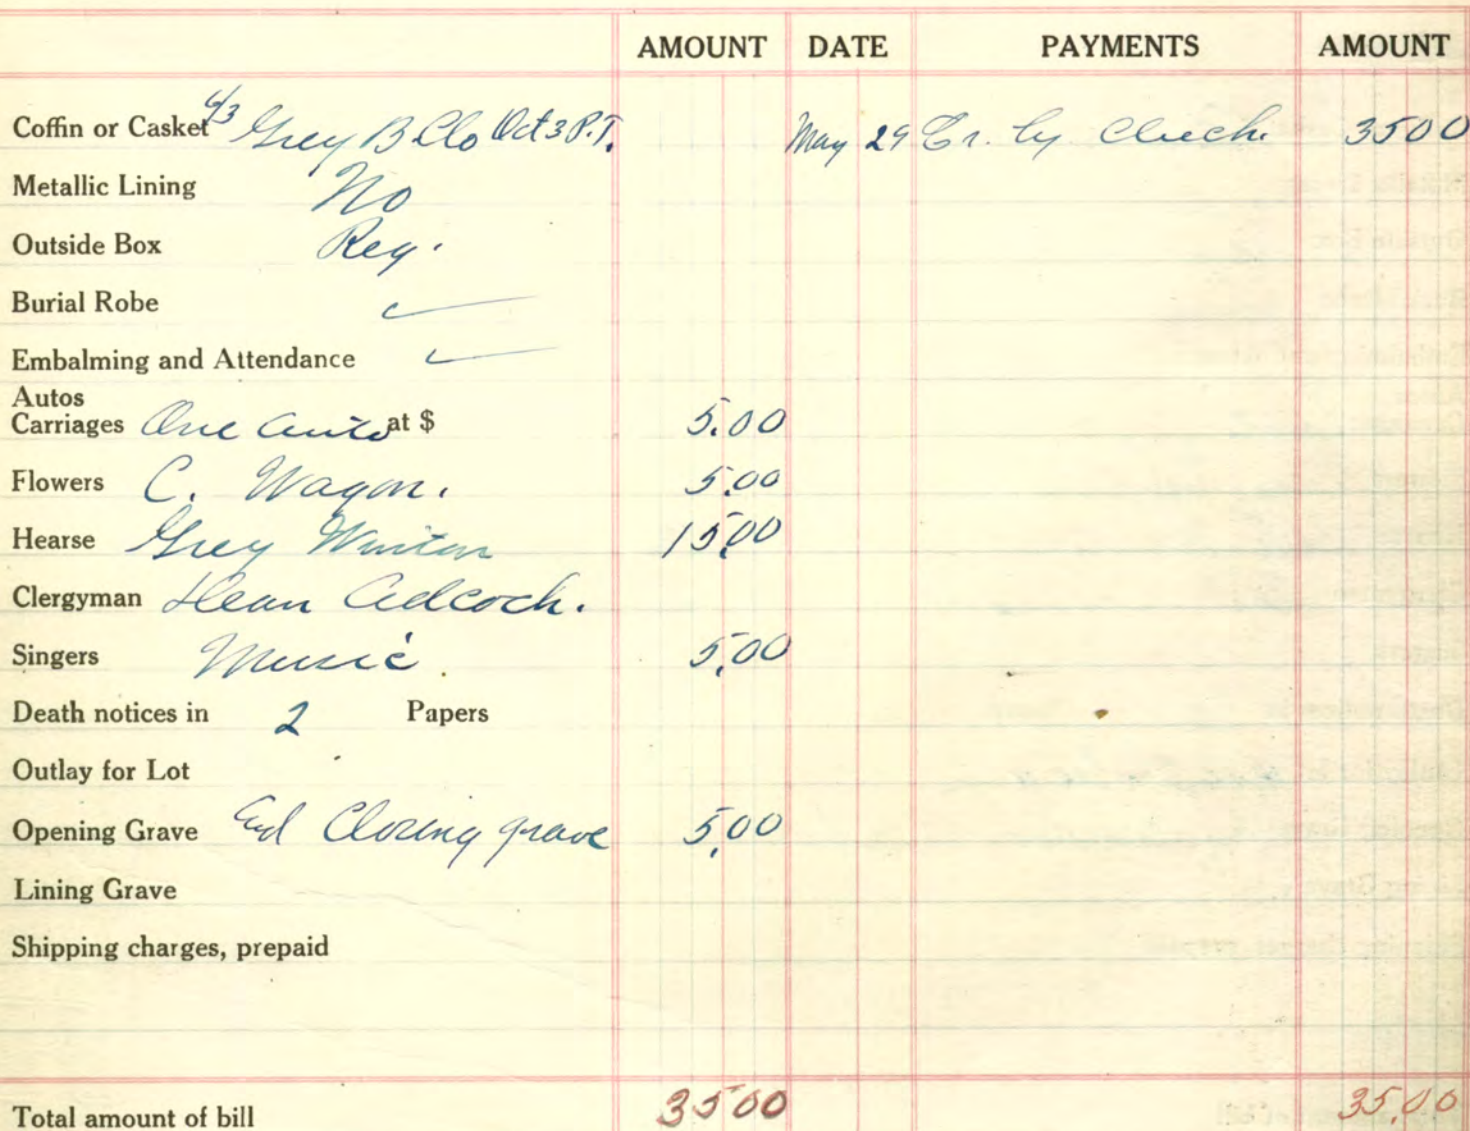 AMOUNT DATE PAYMENTS AMOUNT
Coffin or Casket 6/3 Grey B Clo Oct 3 P.T. May 29 Cr. by Check. 35 00
Metallic Lining No
Outside Box Reg.
Burial Robe ✓
Embalming and Attendance ✓
Autos
Carriages One Auto at $ 5.00
Flowers C. Wagon. 5.00
Hearse Grey Winton 15.00
Clergyman Dean Adcock.
Singers Music. 5.00
Death notices in 2 Papers
Outlay for Lot
Opening Grave and Closing grave 5.00
Lining Grave
Shipping charges, prepaid
Total amount of bill 35 00 35.00